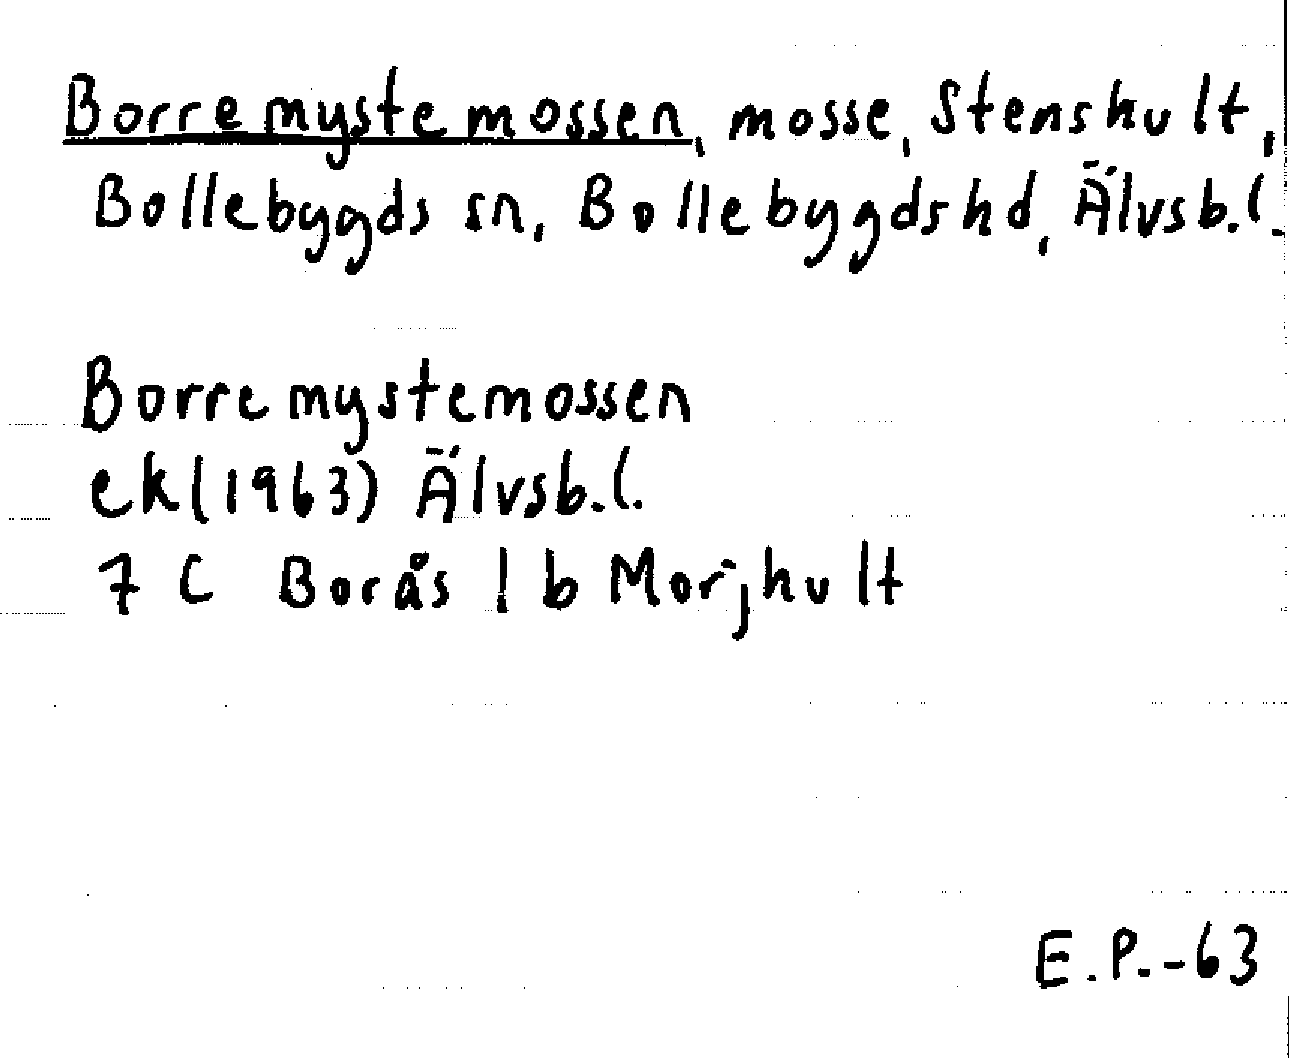 Borremystemossen, mosse, Stenshult,
Bollebygds sn, Bollebygdshd, Älvsb.l.
Borremystemossen
ek(1963) Älvsb.l.
7 C Borås 1 b Morjhult
E.P.-63